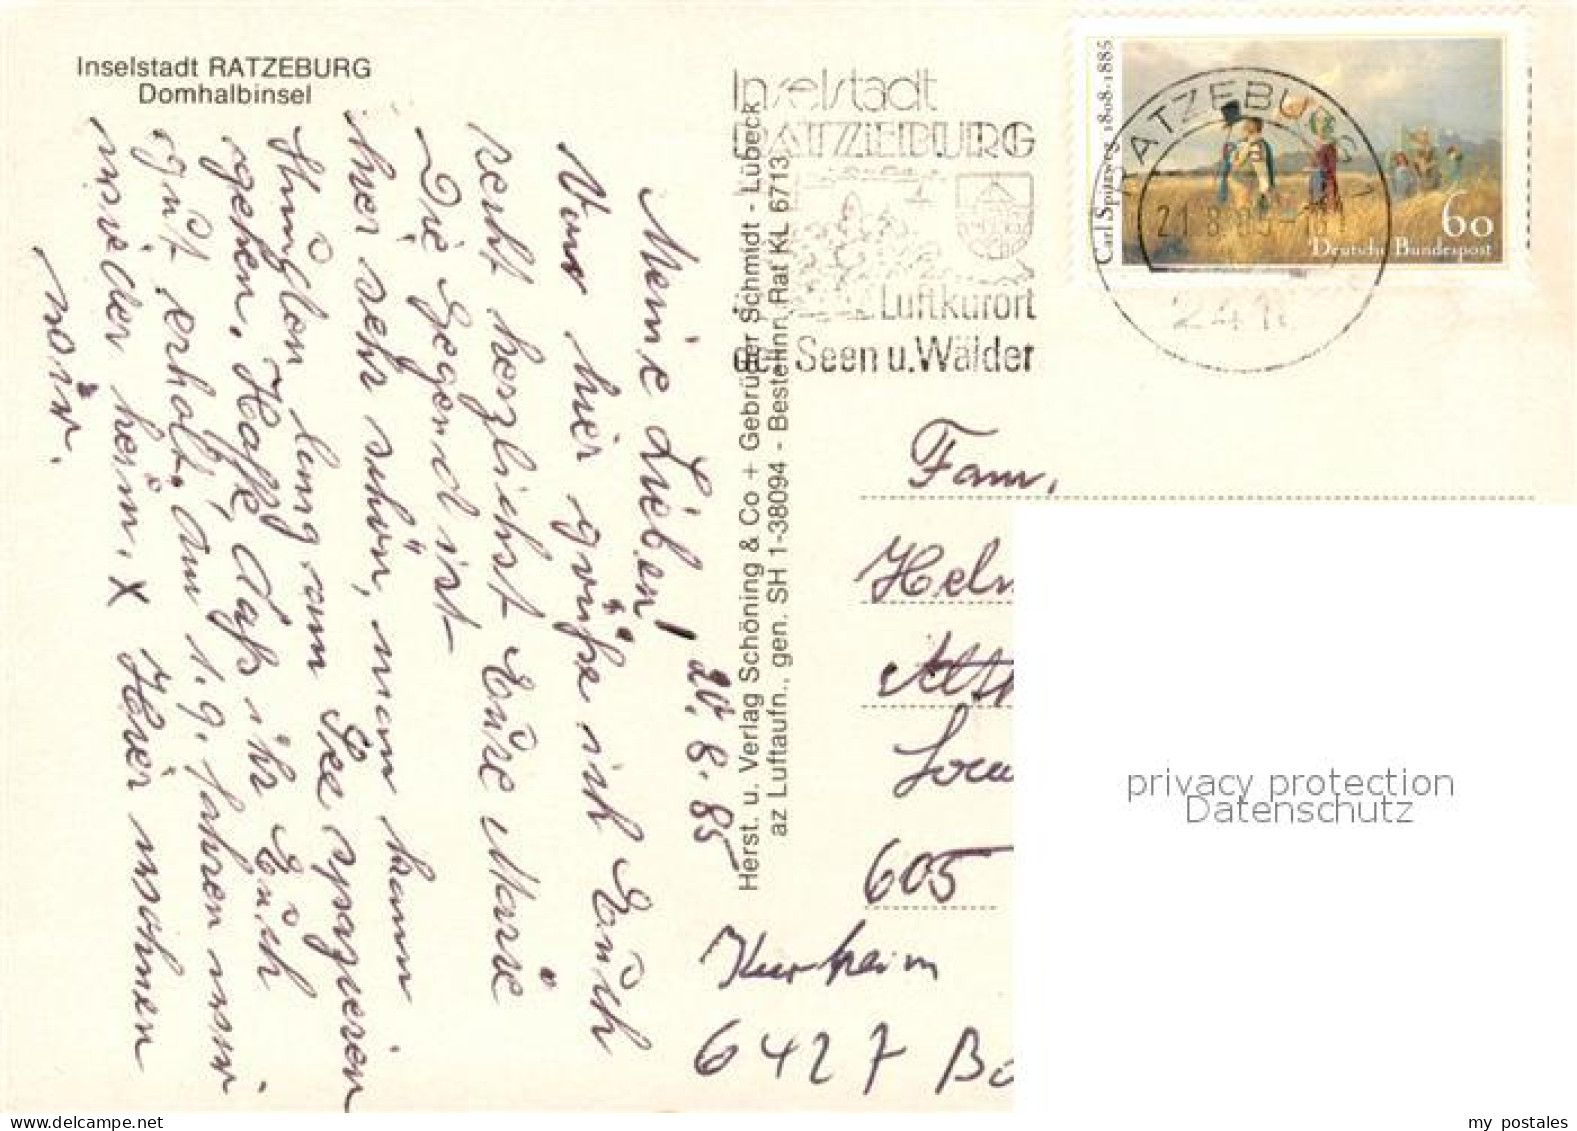 Inselstadt RATZEBURG
Domhalbinsel
Inselstadt
RATZEBURG
Luftkurort
der Seen u. Wälder
Carl Spitzweg 1808-1885
60
Deutsche Bundespost
RATZEBURG
21.8.85-18
241
Herst. u. Verlag Schöning & Co + Gebrüder Schmidt - Lübeck
az Luftaufn., gen. SH 1-38094 - Bestellnr. Rat KL 6713
20.8.85
Meine Lieben!
Von hier grüße ich Euch
recht herzlichst Eure Marie
Die Gegend ist
hier sehr schön, man kann
Stunden lang am See spazieren
gehen. Hoffe, daß ihr Euch
gut erholt. Am 1.9. fahren wir
wieder heim. X Hier wohnen
wir.
Fam.
Heln
605
Kurheim
6427 Bo
privacy protection
Datenschutz
my postales